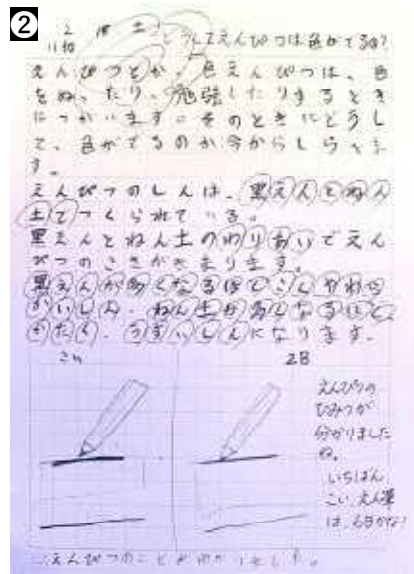 ②
どうしてえんぴつは色がでるの?
えんぴつとか、色えんぴつは、色
をぬったり、勉強したりするとき
につかいます。そのときにどうし
て、色がでるのか今からしらべま
す。
えんぴつのしんは、黒えんとねん
土でつくられている。
黒えんとねん土のわりあいでえん
ぴつのこさがきまります。
黒えんが多くなるほどこくやわら
かいしん、ねん土が多くなるほど
かたく、うすいしんになります。
2B
えんぴつの
ひみつが
分かりました
ね。
いちばん
こい、えん筆
は、6Bかな!
えんぴつのことが分かりました。